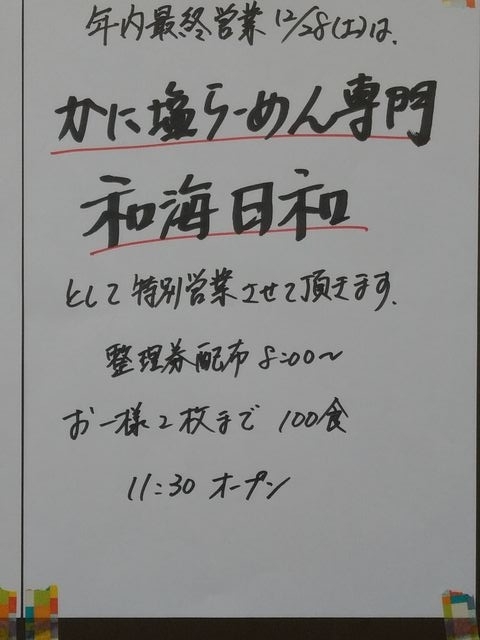 年内最終営業12/28(土)は、
かに塩らーめん専門
和海日和
として特別営業させて頂きます、
整理券配布 8:00〜
お一様2枚まで 100食
11:30 オープン